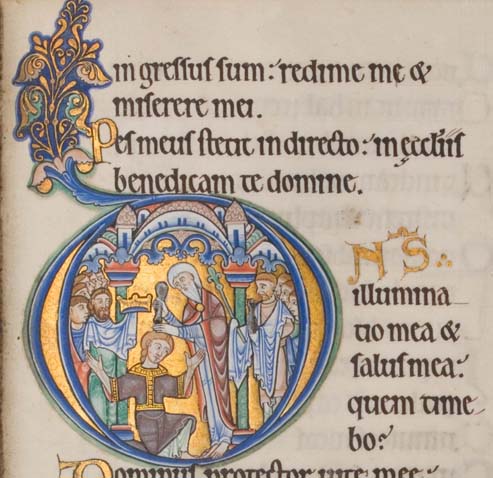 in gressus sum: redime me &
miserere mei.
Pes meus stetit in directo: in ęccl̄iis
benedicam te domine.
D
NS
illumina
tio mea &
salus mea:
quem time
bo:
Dominus protector vite mee: